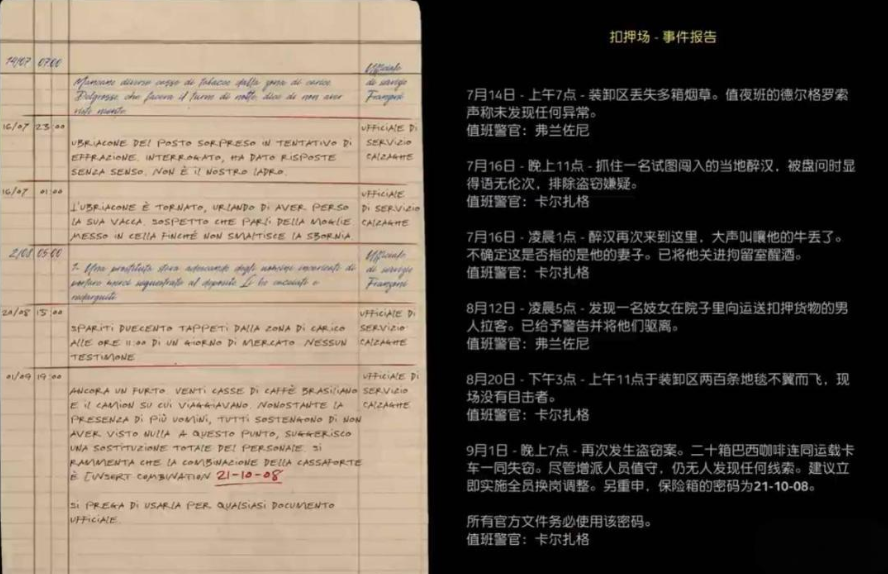 14/07 07:00
Mancano diverse casse di tabacco dalla zona di carico
Delgrosso che faceva il turno di notte, dice di non aver
visto niente
Ufficiale
di servizio
Franzoni
16/07 23:00
UBRIACONE DEL POSTO SORPRESO IN TENTATIVO DI
EFFRAZIONE. INTERROGATO, HA DATO RISPOSTE
SENZA SENSO. NON È IL NOSTRO LADRO.
UFFICIALE DI
SERVIZIO
CALZAGHE
16/07 01:00
L'UBRIACONE È TORNATO, URLANDO DI AVER PERSO
LA SUA VACCA. SOSPETTO CHE PARLI DELLA MOGLIE
MESSO IN CELLA FINCHÈ NON SMALTISCE LA SBORNIA
UFFICIALE
DI SERVIZIO
CALZAGHE
05:00
Una prostituta stava adescando degli uomini incaricati di
portare merci sequestrate al deposito Li ho cacciati e
Ufficiale
di servizio
Franzoni
20/08 15:00
SPARITI DUECENTO TAPPETI DALLA ZONA DI CARICO
ALLE ORE 11:00 DI UN GIORNO DI MERCATO NESSUN
TESTIMONE
UFFICIALE DI
SERVIZIO
CALZAGHE
01/09 19:00
ANCORA UN FURTO. VENTI CASSE DI CAFFÈ BRASILIANO
E IL CAMION SU CUI VIAGGIAVANO. NONOSTANTE LA
PRESENZA DI PIÙ UOMINI, TUTTI SOSTENGONO DI NON
AVER VISTO NULLA A QUESTO PUNTO, SUGGERISCO
UNA SOSTITUZIONE TOTALE DEL PERSONALE. SI
RAMMENTA CHE LA COMBINAZIONE DELLA CASSAFORTE
È [INSERT COMBINATION 21-10-08
SI PREGA DI USARLA PER QUALSIASI DOCUMENTO
UFFICIALE
UFFICIALE DI
SERVIZIO
CALZAGHE
扣押场 - 事件报告
7月14日 - 上午7点 - 装卸区丢失多箱烟草。值夜班的德尔格罗索
声称未发现任何异常。
值班警官：弗兰佐尼
7月16日 - 晚上11点 - 抓住一名试图闯入的当地醉汉，被盘问时显
得语无伦次，排除盗窃嫌疑。
值班警官：卡尔扎格
7月16日 - 凌晨1点 - 醉汉再次来到这里，大声叫嚷他的牛丢了。
不确定这是否指的是他的妻子。已将他关进拘留室醒酒。
值班警官：卡尔扎格
8月12日 - 凌晨5点 - 发现一名妓女在院子里向运送扣押货物的男
人拉客。已给予警告并将他们驱离。
值班警官：弗兰佐尼
8月20日 - 下午3点 - 上午11点于装卸区两百条地毯不翼而飞，现
场没有目击者。
值班警官：卡尔扎格
9月1日 - 晚上7点 - 再次发生盗窃案。二十箱巴西咖啡连同运载卡
车一同失窃。尽管增派人员值守，仍无人发现任何线索。建议立
即实施全员换岗调整。另重申，保险箱的密码为21-10-08。
所有官方文件务必使用该密码。
值班警官：卡尔扎格